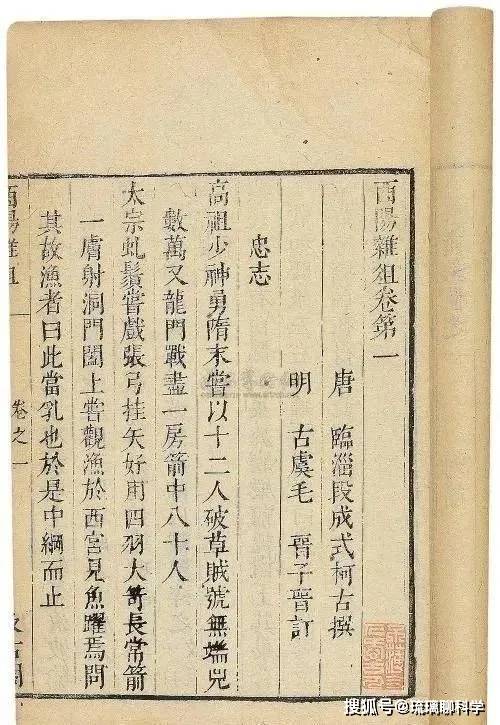 酉陽雜俎卷第一
唐　臨淄段成式柯古撰
明　古虞毛　晉子晉訂
忠志
高祖少神勇隋末嘗以十二人破草賊號無端兒
數萬又龍門戰盡一房箭中八十人
太宗虬鬚嘗戲張弓挂矢好用四羽大笴長常箭
一膚射洞門闔上嘗觀漁於西宮見魚躍焉問
其故漁者曰此當乳也於是中網而止
酉陽雜俎
卷之一
搜狐号@琉璃聊科学